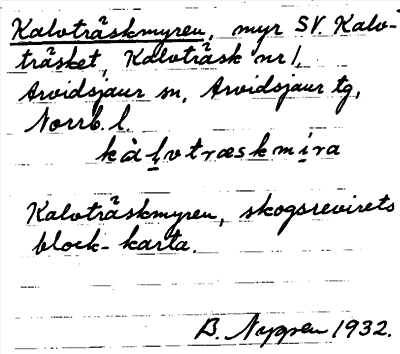 Kalvträskmyren, myr SV. Kalv-
träsket, Kalvträsk nr 1,
Arvidsjaur sn, Arvidsjaur tg,
Norrb. l.
kàḷvtræskmi̱ra
Kalvträskmyren, skogsrevirets
block-karta.
B. Nygren 1932.